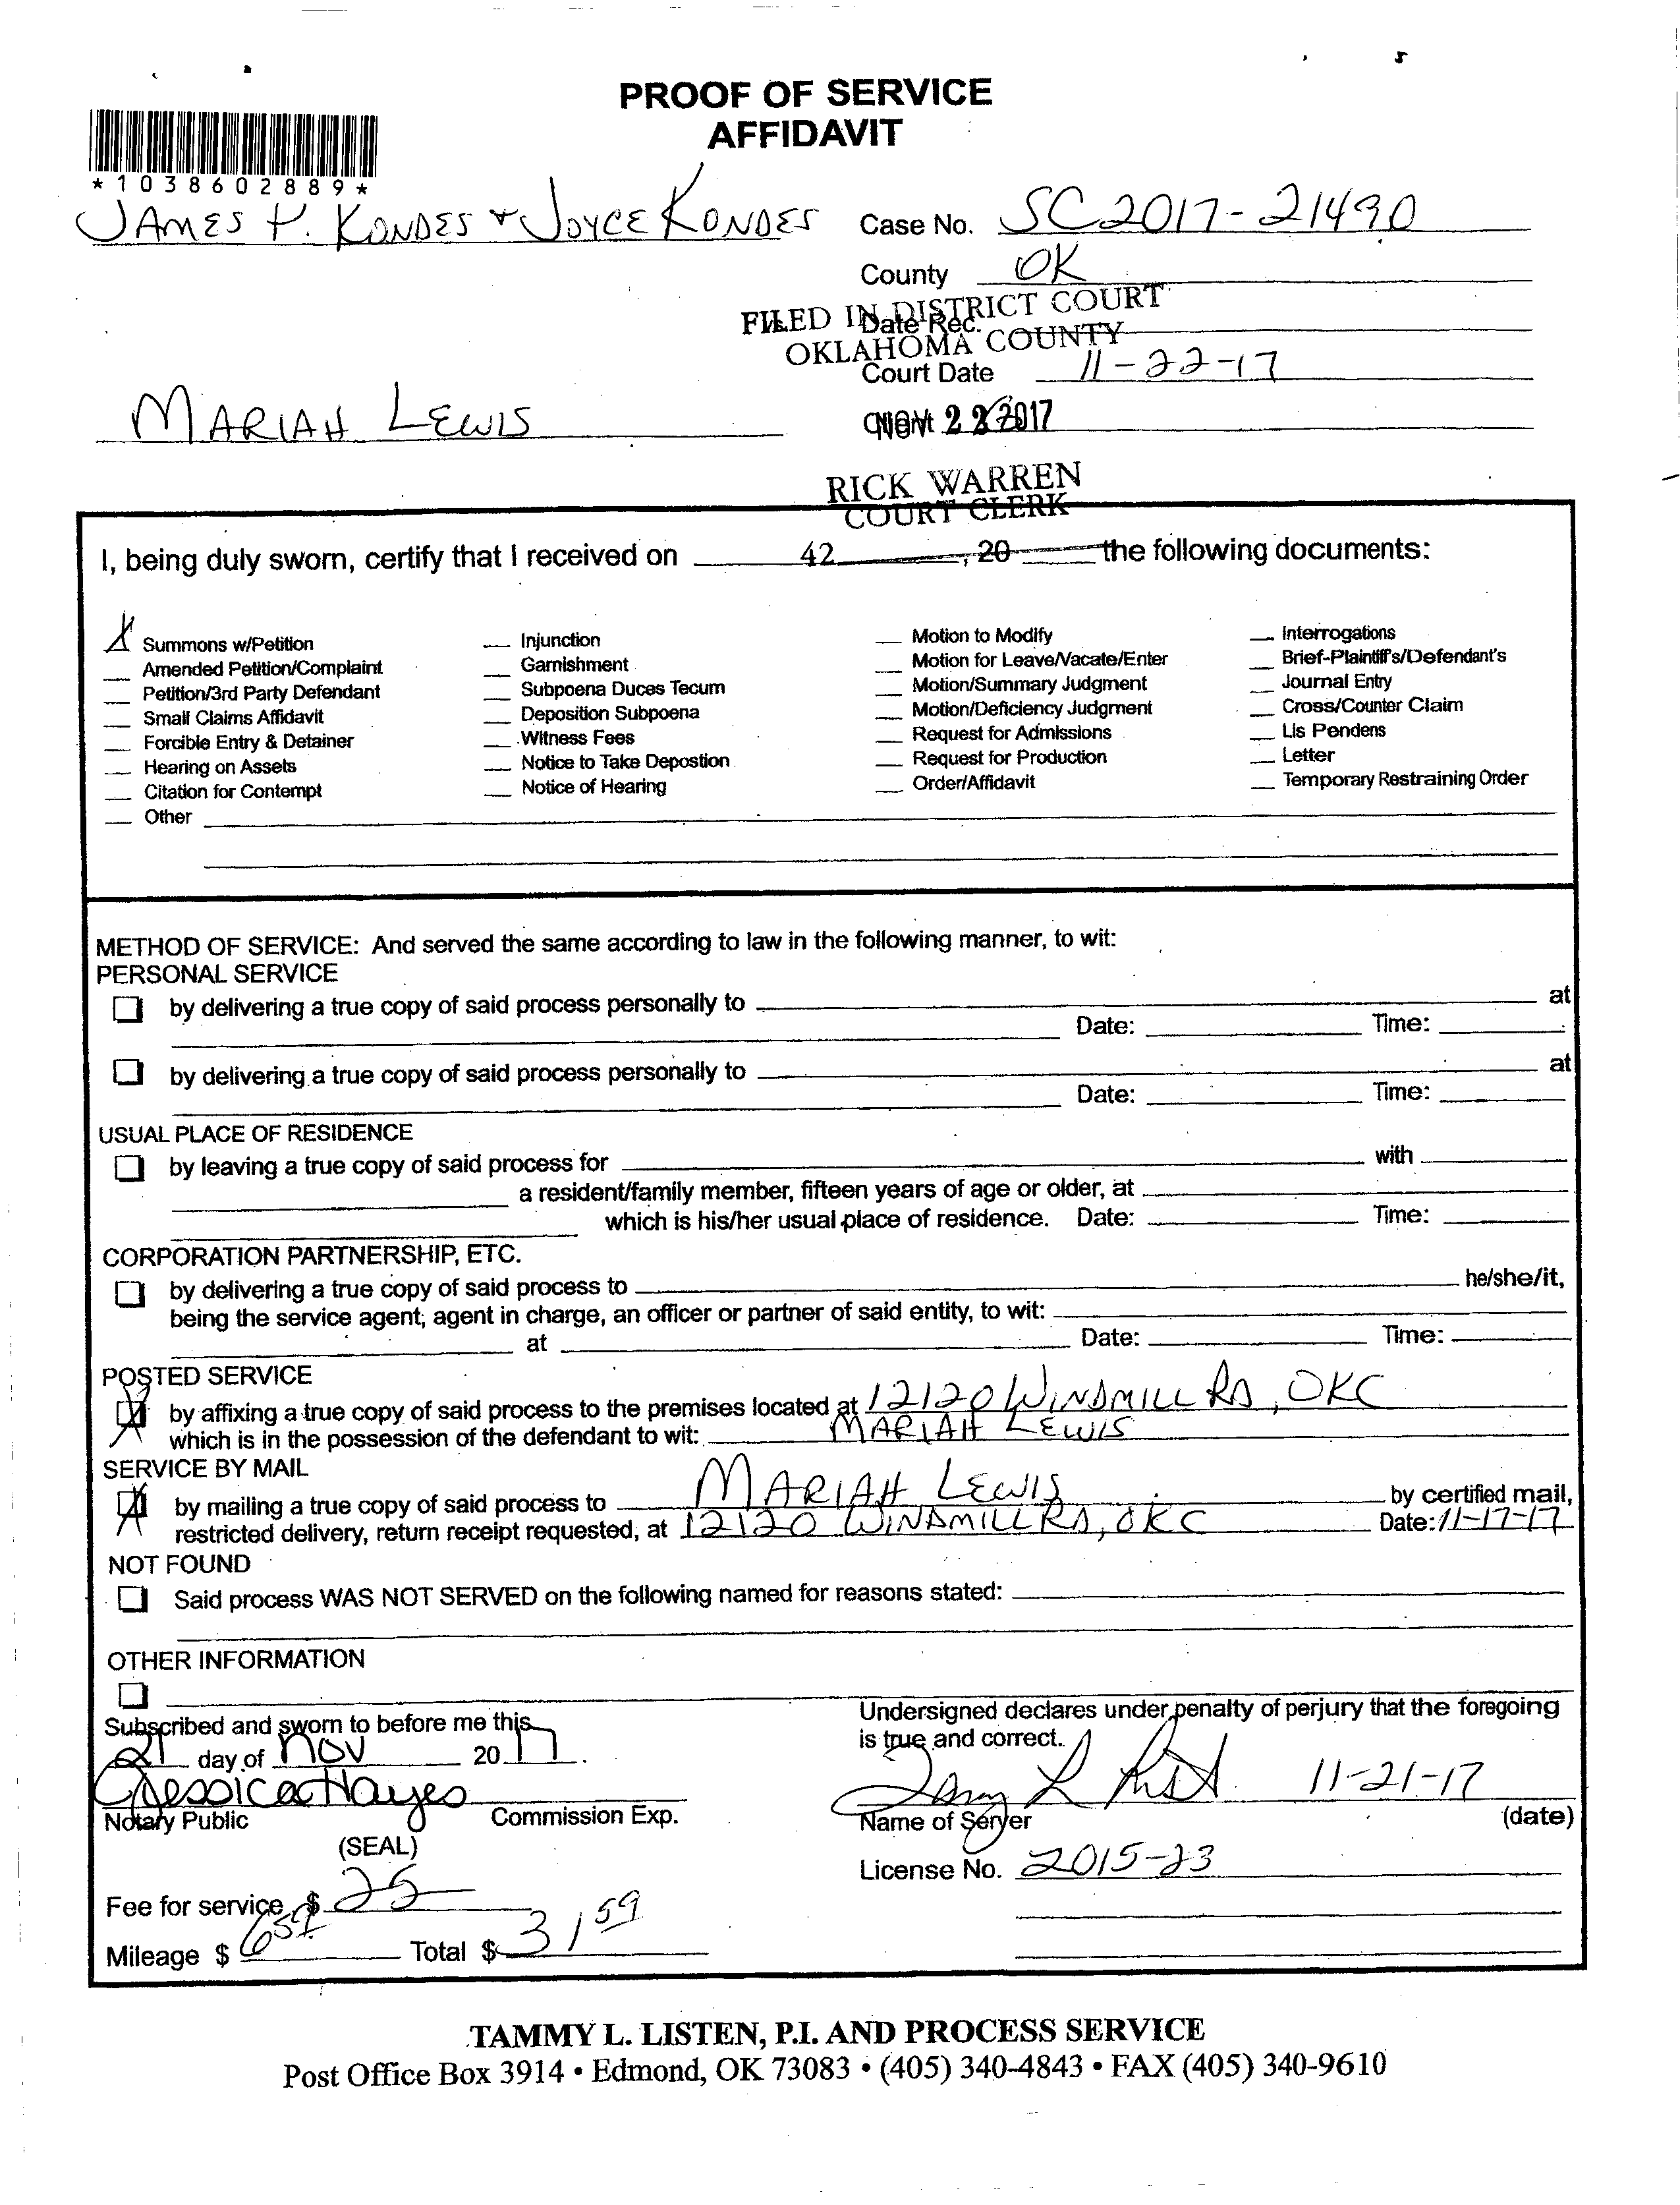 PROOF OF SERVICE
AFFIDAVIT
*1038602889*
JAMES P. KONDES + JOYCE KONDES
Case No. SC2017-21490
County OK
FILED IN DISTRICT COURT
Date Rec.
OKLAHOMA COUNTY
Court Date 11-22-17
MARIAH LEWIS
NOV 22 2017
RICK WARREN
COURT CLERK
I, being duly sworn, certify that I received on 42 , 20 the following documents:
X Summons w/Petition
Amended Petition/Complaint
Petition/3rd Party Defendant
Small Claims Affidavit
Forcible Entry & Detainer
Hearing on Assets
Citation for Contempt
Other
Injunction
Garnishment
Subpoena Duces Tecum
Deposition Subpoena
Witness Fees
Notice to Take Depostion
Notice of Hearing
Motion to Modify
Motion for Leave/Vacate/Enter
Motion/Summary Judgment
Motion/Deficiency Judgment
Request for Admissions
Request for Production
Order/Affidavit
Interrogations
Brief-Plaintiff's/Defendant's
Journal Entry
Cross/Counter Claim
Lis Pendens
Letter
Temporary Restraining Order
METHOD OF SERVICE: And served the same according to law in the following manner, to wit:
PERSONAL SERVICE
by delivering a true copy of said process personally to at
Date: Time:
by delivering a true copy of said process personally to at
Date: Time:
USUAL PLACE OF RESIDENCE
by leaving a true copy of said process for with
a resident/family member, fifteen years of age or older, at
which is his/her usual place of residence. Date: Time:
CORPORATION PARTNERSHIP, ETC.
by delivering a true copy of said process to he/she/it,
being the service agent, agent in charge, an officer or partner of said entity, to wit:
at Date: Time:
POSTED SERVICE
X by affixing a true copy of said process to the premises located at 12120 WINDMILL RD, OKC
which is in the possession of the defendant to wit: MARIAH LEWIS
SERVICE BY MAIL
X by mailing a true copy of said process to MARIAH LEWIS by certified mail,
restricted delivery, return receipt requested, at 12120 WINDMILL RD, OKC Date: 11-17-17
NOT FOUND
Said process WAS NOT SERVED on the following named for reasons stated:
OTHER INFORMATION
Subscribed and sworn to before me this
21 day of Nov 2017.
Jessica Hayes
Notary Public Commission Exp.
(SEAL)
Fee for service $ 25
Mileage $ 659 Total $ 31 59
Undersigned declares under penalty of perjury that the foregoing
is true and correct.
11-21-17
Name of Server (date)
License No. 2015-23
TAMMY L. LISTEN, P.I. AND PROCESS SERVICE
Post Office Box 3914 • Edmond, OK 73083 • (405) 340-4843 • FAX (405) 340-9610